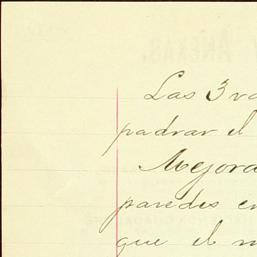 Las 3 va
padrar el
Mejora
paredes en
que el m